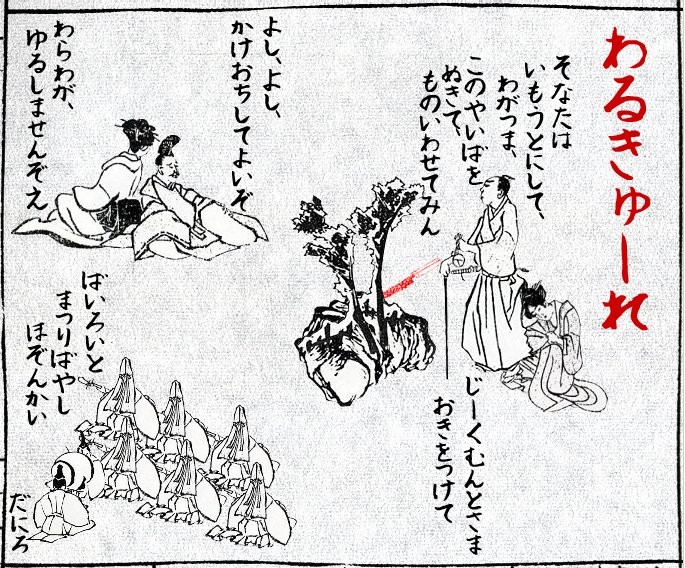 わるきゅーれ
そなたは
いもうとにして、
わがつま、
このやいばを
ぬきて、
ものいわせてみん
じーくむんとさま
おきをつけて
よし、よし、
かけおちしてよいぞ
わらわが、
ゆるしませんぞえ
ばいろいと
まつりばやし
ほぞんかい
だにろ